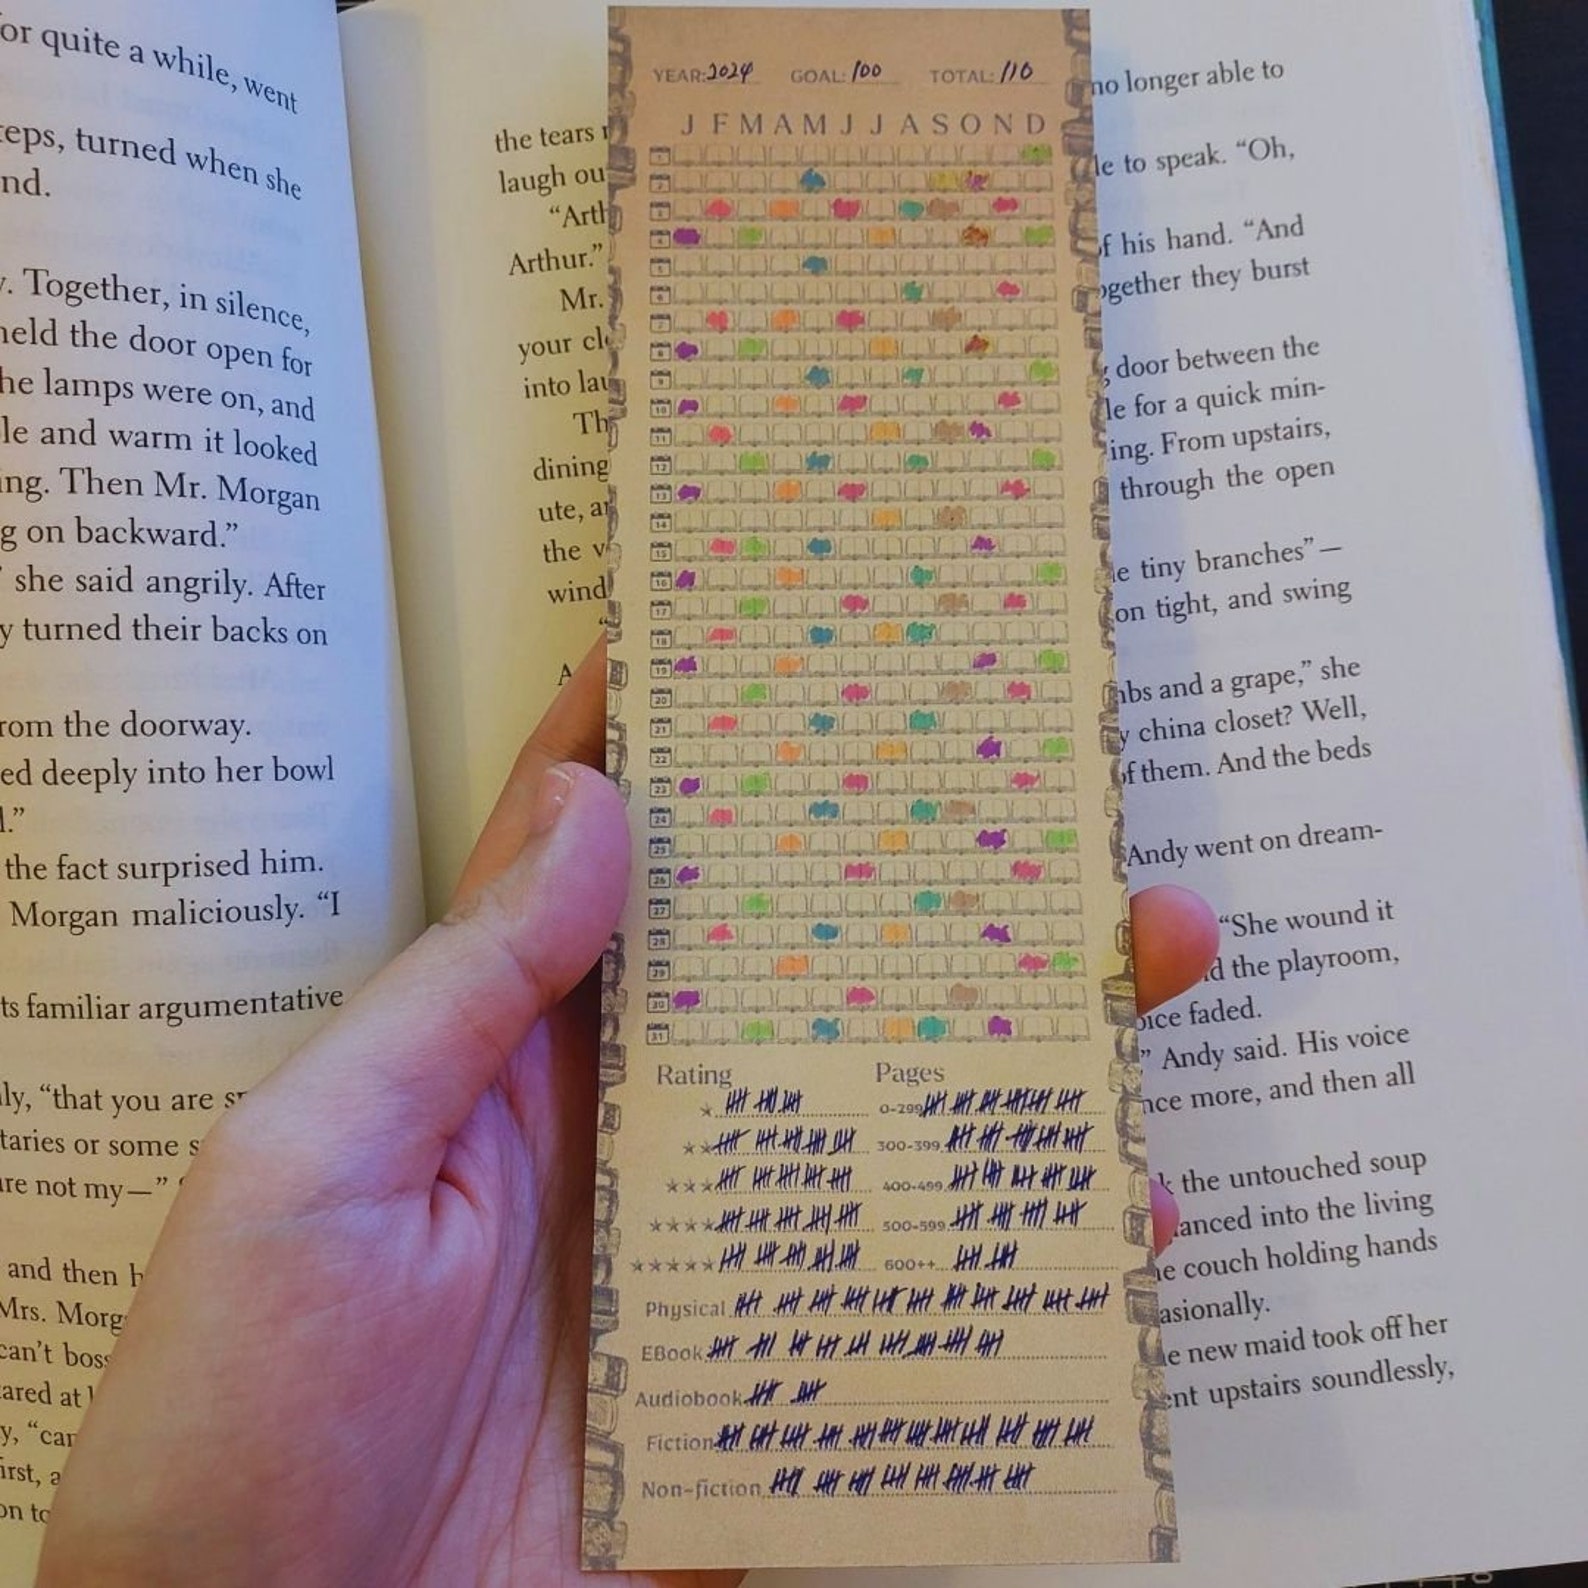 or quite a while, went
teps, turned when she
nd.
y. Together, in silence,
held the door open for
he lamps were on, and
le and warm it looked
ing. Then Mr. Morgan
g on backward.”
” she said angrily. After
y turned their backs on
rom the doorway.
ed deeply into her bowl
l.”
the fact surprised him.
Morgan maliciously. “I
ts familiar argumentative
ly, “that you are sp
taries or some s
ure not my—”
and then h
Mrs. Morg
can’t boss
tared at
y, “can
first, a
on to
the tears
laugh ou
“Arth
Arthur.”
Mr.
your cl
into lau
Th
dining
ute, an
the v
wind
“
A
YEAR: 2024 GOAL: 100 TOTAL: 110
J F M A M J J A S O N D
1
2
3
4
5
6
7
8
9
10
11
12
13
14
15
16
17
18
19
20
21
22
23
24
25
26
27
28
29
30
31
Rating Pages
0-299
300-399
400-499
500-599
600++
Physical
EBook
Audiobook
Fiction
Non-fiction
no longer able to
le to speak. “Oh,
of his hand. “And
ogether they burst
g door between the
le for a quick min-
ing. From upstairs,
through the open
e tiny branches”—
on tight, and swing
nbs and a grape,” she
y china closet? Well,
of them. And the beds
Andy went on dream-
“She wound it
d the playroom,
oice faded.
” Andy said. His voice
nce more, and then all
k the untouched soup
lanced into the living
ne couch holding hands
asionally.
e new maid took off her
ent upstairs soundlessly,